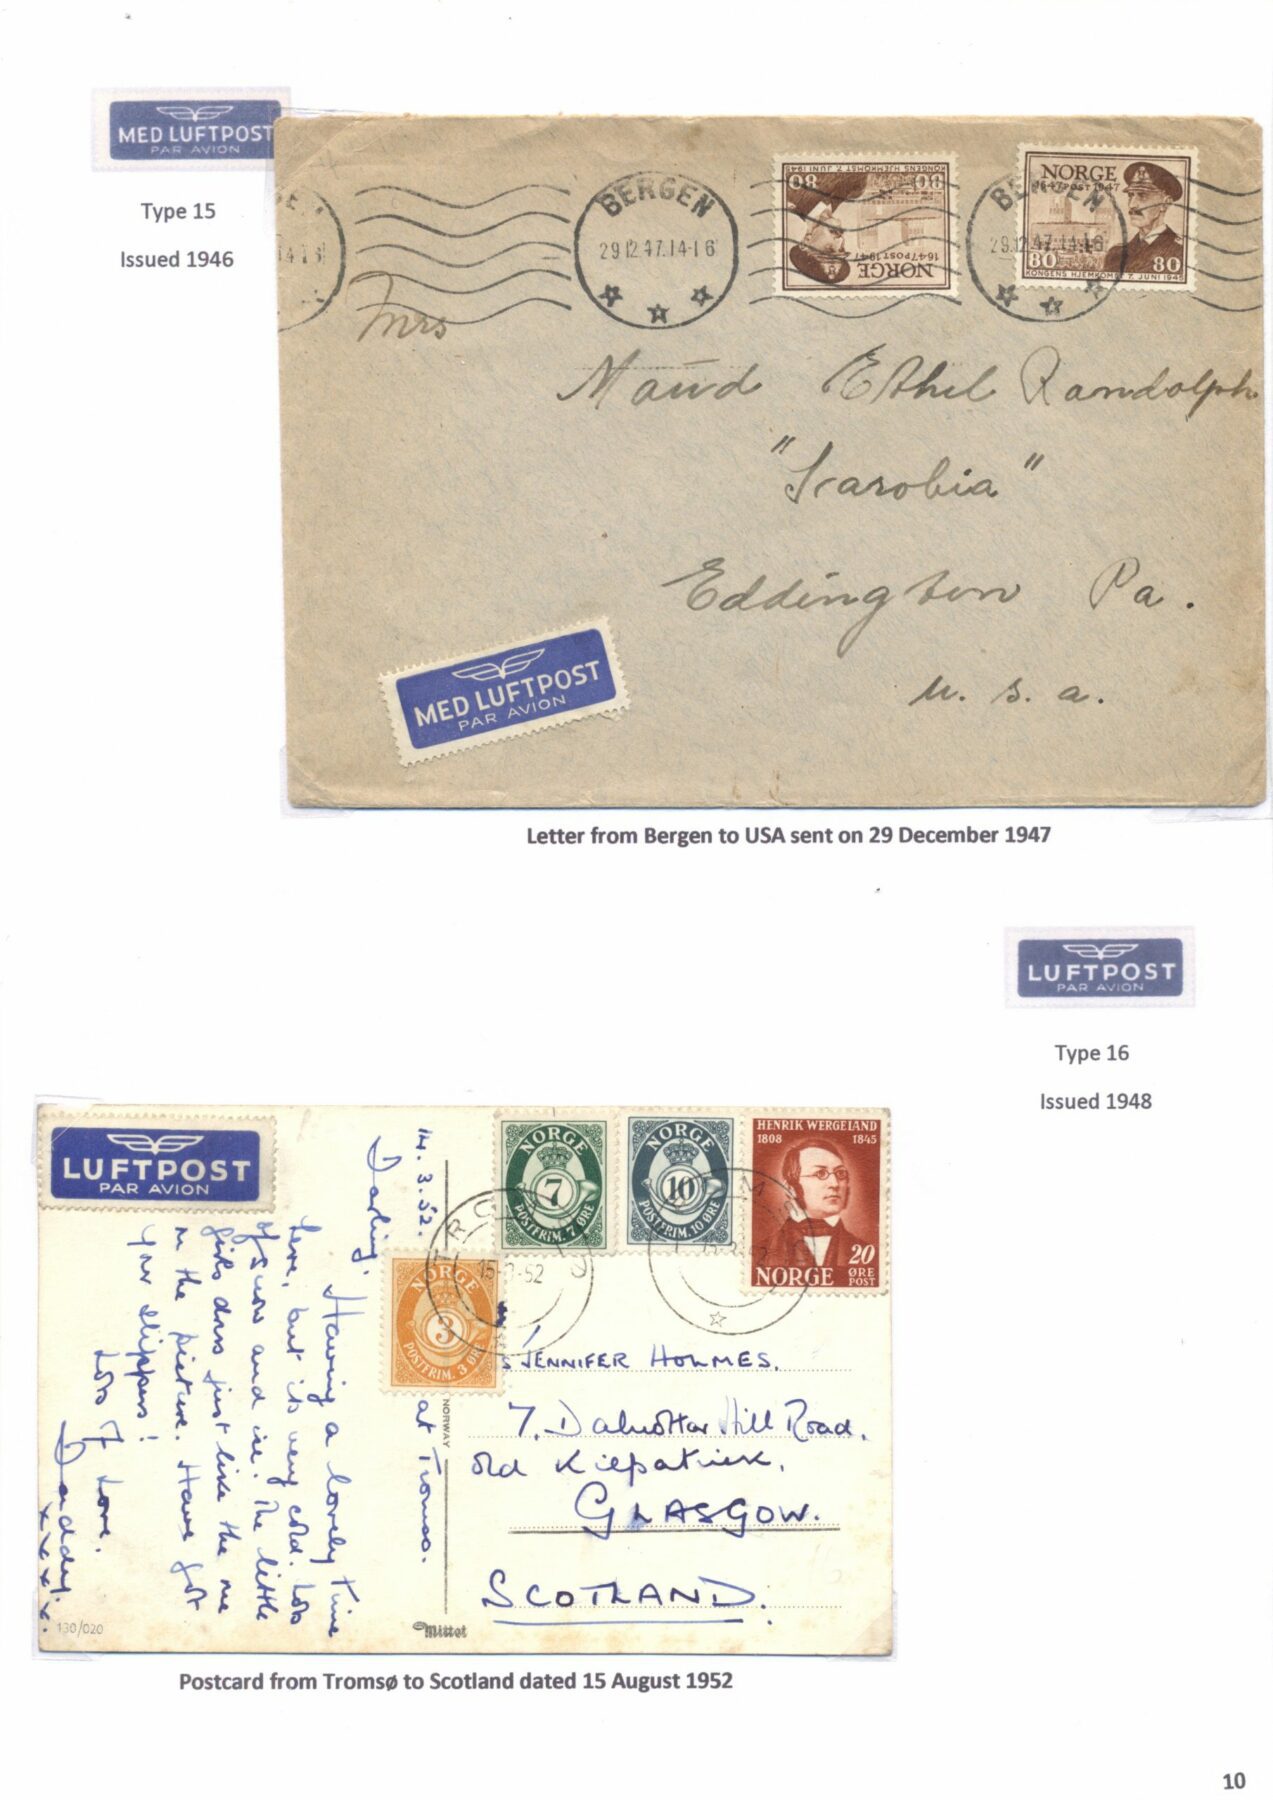 MED LUFTPOST
PAR AVION
Type 15
Issued 1946
BERGEN
29 12 47. 14-16
80 80
KONGENS HJEMKOMST 7. JUNI 1945
NORGE
1647 POST 1947
BERGEN
29.12.47. 14-16
NORGE
1647 POST 1947
80 80
KONGENS HJEMKOMST 7. JUNI 1945
Mrs
Maud Ethel Randolph
"Icarobia"
Eddington Pa.
U. S. a.
MED LUFTPOST
PAR AVION
Letter from Bergen to USA sent on 29 December 1947
LUFTPOST
PAR AVION
Type 16
Issued 1948
LUFTPOST
PAR AVION
14. 3. 52. at Tromso.
Darling,
Having a lovely time
here, but its very cold. Lots
of snow and ice. The little
girls dress just like the one
in the picture. Have got
your slippers!
Lots of Love.
Daddy.
x x x x.
NORGE
7
POSTFRIM. 7 ØRE
NORGE
10
POSTFRIM. 10 ØRE
HENRIK WERGELAND
1808 1845
20
ØRE
NORGE POST
NORGE
3
POSTFRIM. 3 ØRE
TROMSØ
15-52
NORWAY
Mittet
130/020
JENNIFER HOLMES.
7. Dalnottar Hill Road.
Old Kilpatrick.
GLASGOW.
SCOTLAND.
Postcard from Tromsø to Scotland dated 15 August 1952
10